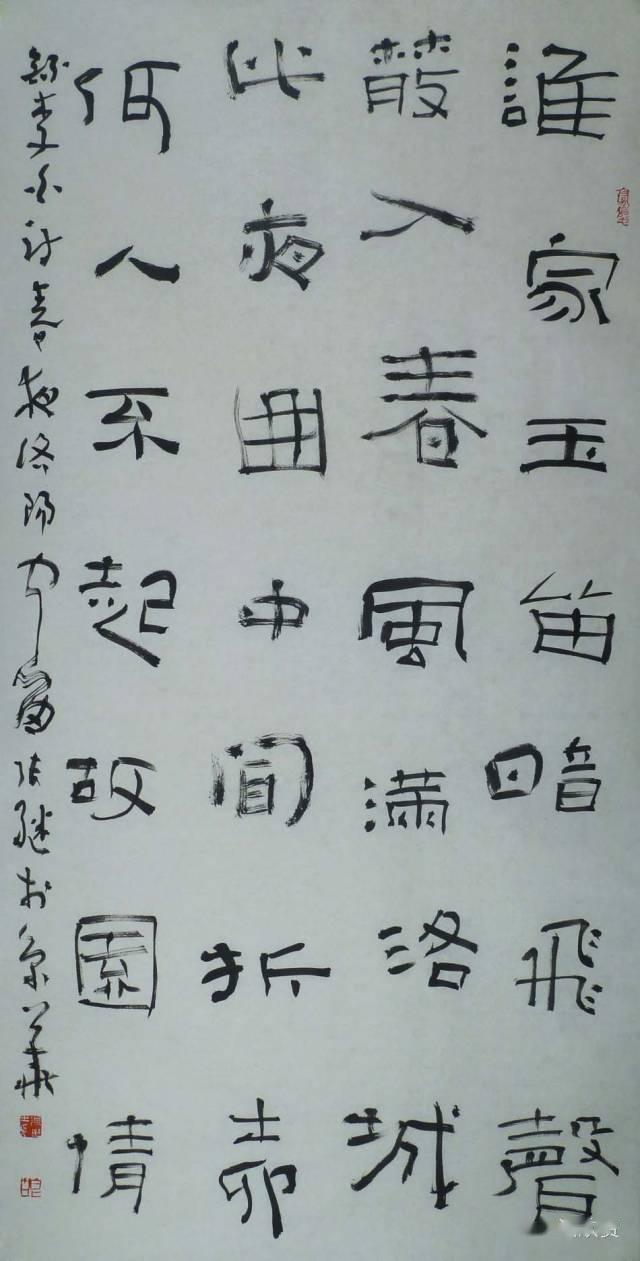 誰家玉笛暗飛聲
散入春風满洛城
此夜曲中聞折柳
何人不起故園情
錄李白詩春夜洛陽聞笛張继於京華